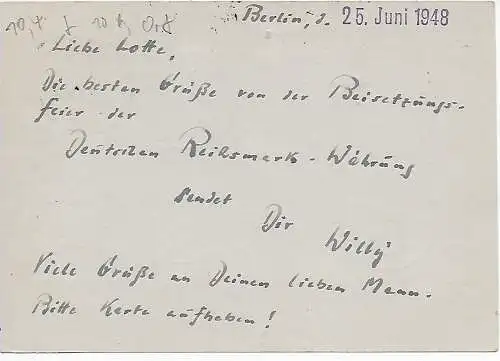 Berlin, d. 25. Juni 1948
Liebe Lotte,
Die besten Grüße von der Beisetzungs-
feier der
Deutschen Reichsmark-Währung
sendet
Dir
Willy
Viele Grüße an Deinen lieben Mann.
Bitte Karte aufheben!